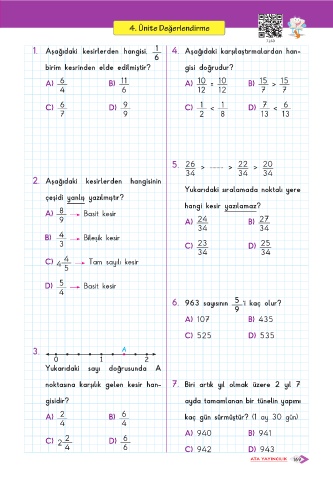 4. Ünite Değerlendirme
1. Aşağıdaki kesirlerden hangisi, 1/6
birim kesrinden elde edilmiştir?
A) 6/4 B) 11/6
C) 6/7 D) 9/9
2. Aşağıdaki kesirlerden hangisinin
çeşidi yanlış yazılmıştır?
A) 8/9 → Basit kesir
B) 4/3 → Bileşik kesir
C) 4 4/5 → Tam sayılı kesir
D) 5/4 → Basit kesir
3. A
0 1 2
Yukarıdaki sayı doğrusunda A
noktasına karşılık gelen kesir han-
gisidir?
A) 2/4 B) 6/4
C) 2 2/4 D) 6/6
4. Aşağıdaki karşılaştırmalardan han-
gisi doğrudur?
A) 10/12 = 10/12 B) 15/7 > 15/7
C) 1/2 < 1/8 D) 7/13 < 6/13
5. 26/34 > ........ > 22/34 > 20/34
Yukarıdaki sıralamada noktalı yere
hangi kesir yazılamaz?
A) 24/34 B) 27/34
C) 23/34 D) 25/34
6. 963 sayısının 5/9 'i kaç olur?
A) 107 B) 435
C) 525 D) 535
7. Biri artık yıl olmak üzere 2 yıl 7
ayda tamamlanan bir tünelin yapımı
kaç gün sürmüştür? (1 ay 30 gün)
A) 940 B) 941
C) 942 D) 943
ATA YAYINCILIK 169